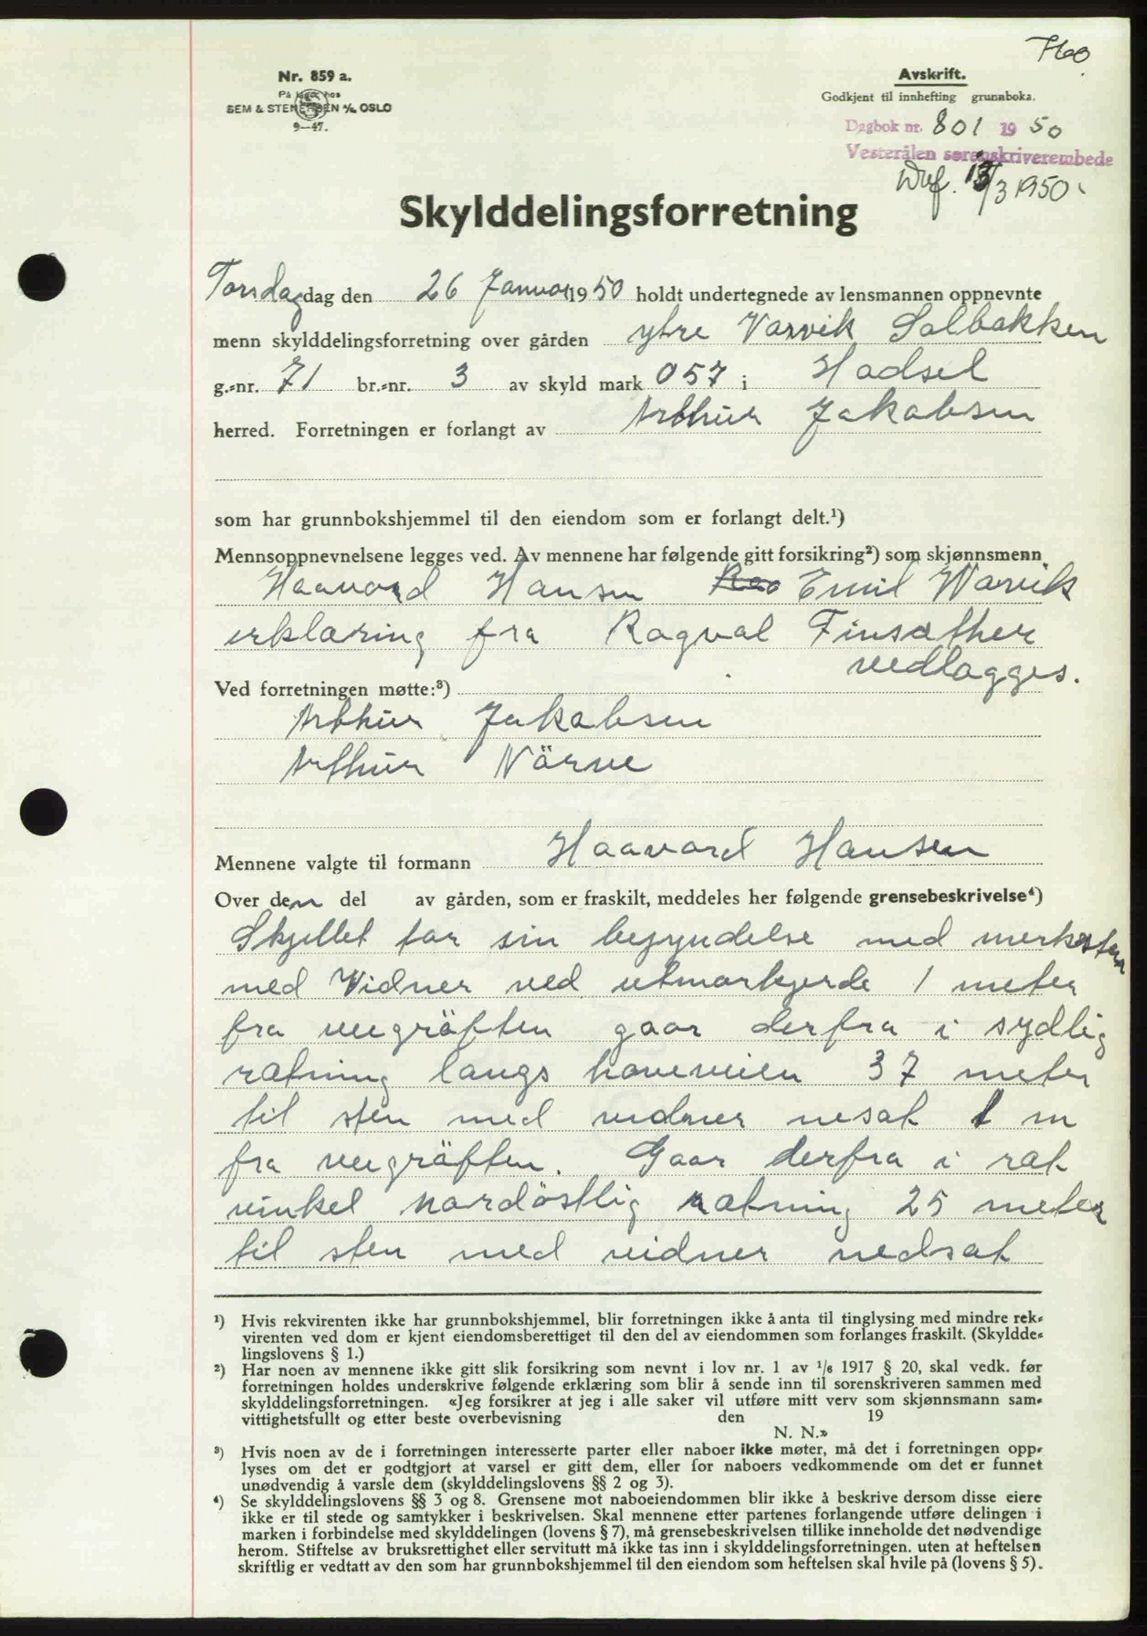 760
Nr. 859 a.
På lager hos
SEM & STENERSEN A/S OSLO
9—47.
Avskrift.
Godkjent til innhefting grunnboka.
Dagbok nr. 801 1950
Vesterålen sorenskriverembede
13/3 1950.
Skylddelingsforretning
Torsdag dag den 26 Januar 1950 holdt undertegnede av lensmannen oppnevnte
menn skylddelingsforretning over gården ytre Varvik Solbakken
g.-nr. 71 br.-nr. 3 av skyld mark 057 i Hadsel
herred. Forretningen er forlangt av Arthur Jakobsen
som har grunnbokshjemmel til den eiendom som er forlangt delt.¹)
Mennsoppnevnelsene legges ved. Av mennene har følgende gitt forsikring²) som skjønnsmenn
Haavard Hansen Emil Warvik
erklæring fra Ragval Finsæther
vedlagges.
Ved forretningen møtte:³)
Arthur Jakobsen
Arthur Närve
Mennene valgte til formann Haavard Hansen
Over den del av gården, som er fraskilt, meddeles her følgende grensebeskrivelse⁴)
Skjellet tar sin begyndelse med merkesten
med Vidner ved utmarkjerde 1 meter
fra veigräften gaar derfra i sydlig
ratning langs hoveveien 37 meter
til sten med vidner nesat 1 m
fra veigräften. Gaar derfra i rat
vinkel nordöstlig ratning 25 meter
til sten med vidner nedsat
¹) Hvis rekvirenten ikke har grunnbokshjemmel, blir forretningen ikke å anta til tinglysing med mindre rek-
virenten ved dom er kjent eiendomsberettiget til den del av eiendommen som forlanges fraskilt. (Skyldde-
lingslovens § 1.)
²) Har noen av mennene ikke gitt slik forsikring som nevnt i lov nr. 1 av ¹/₆ 1917 § 20, skal vedk. før
forretningen holdes underskrive følgende erklæring som blir å sende inn til sorenskriveren sammen med
skylddelingsforretningen. «Jeg forsikrer at jeg i alle saker vil utføre mitt verv som skjønnsmann sam-
vittighetsfullt og etter beste overbevisning den 19
N. N.»
³) Hvis noen av de i forretningen interesserte parter eller naboer ikke møter, må det i forretningen opp-
lyses om det er godtgjort at varsel er gitt dem, eller for naboers vedkommende om det er funnet
unødvendig å varsle dem (skylddelingslovens §§ 2 og 3).
⁴) Se skylddelingslovens §§ 3 og 8. Grensene mot naboeiendommen blir ikke å beskrive dersom disse eiere
ikke er til stede og samtykker i beskrivelsen. Skal mennene etter partenes forlangende utføre delingen i
marken i forbindelse med skylddelingen (lovens § 7), må grensebeskrivelsen tillike inneholde det nødvendige
herom. Stiftelse av bruksrettighet eller servitutt må ikke tas inn i skylddelingsforretningen, uten at heftelsen
skriftlig er vedtatt av den som har grunnbokshjemmel til den eiendom som heftelsen skal hvile på (lovens § 5).